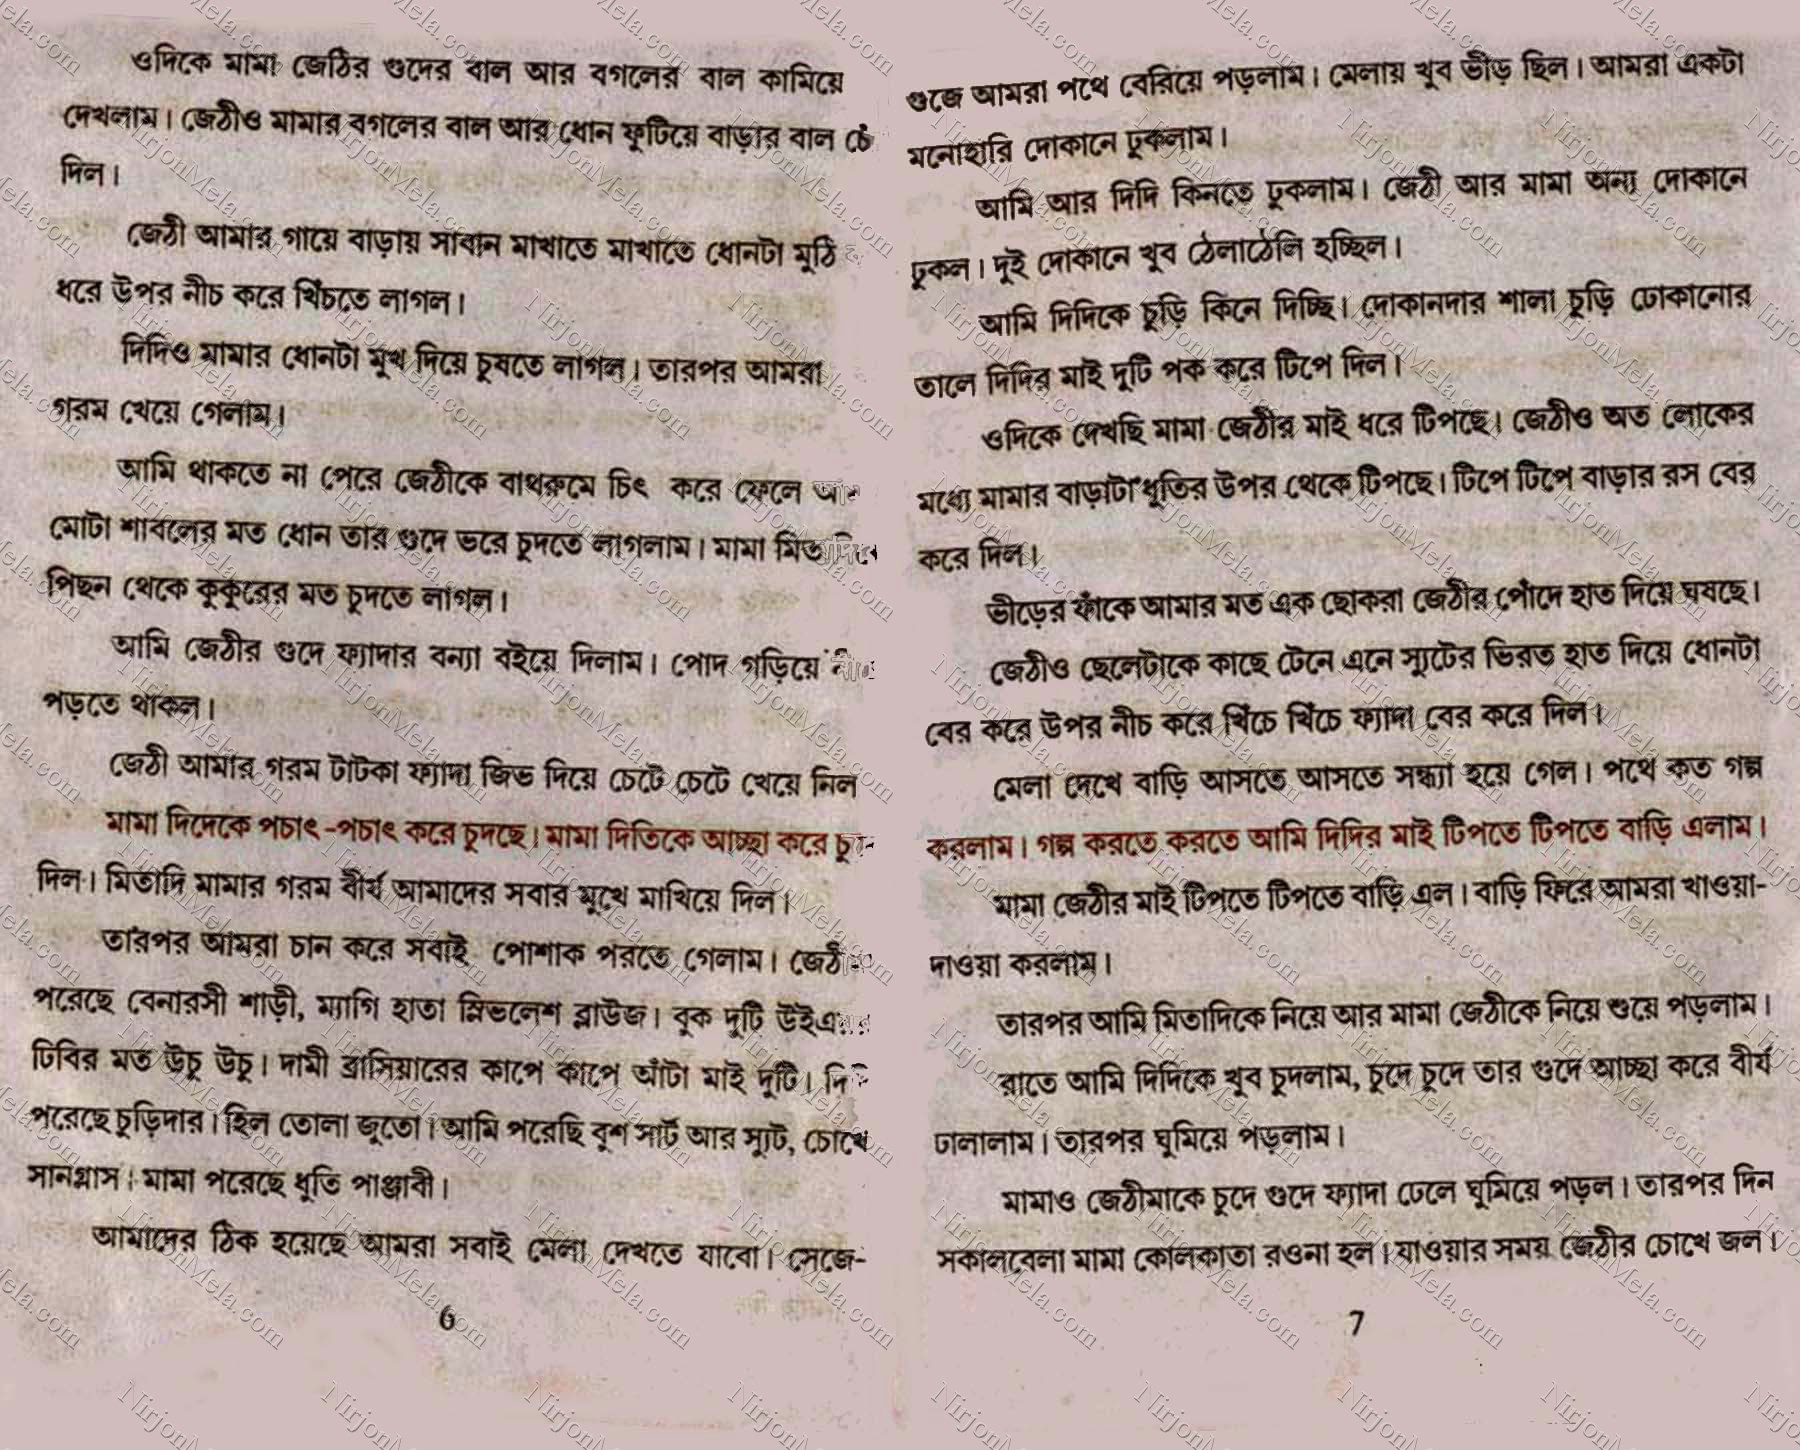 ওদিকে মামা জেঠির গুদের বাল আর বগলের বাল কামিয়ে
দেখলাম। জেঠীও মামার বগলের বাল আর ধোন ফুটিয়ে বাড়ার বাল
দিল।
জেঠী আমার গায়ে বাড়ায় সাবান মাখাতে মাখাতে ধোনটা মুঠি
ধরে উপর নীচ করে খিঁচতে লাগল।
দিদিও মামার ধোনটা মুখ দিয়ে চুষতে লাগল। তারপর আমরা
গরম খেয়ে গেলাম।
আমি থাকতে না পেরে জেঠীকে বাথরুমে চিৎ করে ফেলে
মোটা শাবলের মত ধোন তার গুদে ভরে চুদতে লাগলাম। মামা
পিছন থেকে কুকুরের মত চুদতে লাগল।
আমি জেঠীর গুদে ফ্যাদার বন্যা বইয়ে দিলাম। পোদ গড়িয়ে
পড়তে থাকল।
জেঠী আমার গরম টাটকা ফ্যাদা জিভ দিয়ে চেটে চেটে খেয়ে নিল
মামা দিদেকে পচাৎ -পচাৎ করে চুদছে। মামা দিতিকে আচ্ছা করে
দিল। মিতাদি মামার গরম বীর্য আমাদের সবার মুখে মাখিয়ে দিল।
তারপর আমরা চান করে সবাই পোশাক পরতে গেলাম।
পরেছে বেনারসী শাড়ী, ম্যাগি হাতা স্লিভলেশ ব্লাউজ। বুক দুটি
ঢিবির মত উচু উচু। দামী ব্রাসিয়ারের কাপে কাপে আঁটা মাই দুটি।
পরেছে চুড়িদার। হিল তোলা জুতো। আমি পরেছি বুশ সার্ট আর স্যুট, চোখে
সানগ্লাস। মামা পরেছে ধুতি পাঞ্জাবী।
আমাদের ঠিক হয়েছে আমরা সবাই মেলা দেখতে যাবো। সেজে-
6
গুজে আমরা পথে বেরিয়ে পড়লাম। মেলায় খুব ভীড় ছিল। আমরা একটা
মনোহারি দোকানে ঢুকলাম।
আমি আর দিদি কিনতে ঢুকলাম। জেঠী আর মামা অন্য দোকানে
ঢুকল। দুই দোকানে খুব ঠেলাঠেলি হচ্ছিল।
আমি দিদিকে চুড়ি কিনে দিচ্ছি। দোকানদার শালা চুড়ি ঢোকানোর
তালে দিদির মাই দুটি পক করে টিপে দিল।
ওদিকে দেখছি মামা জেঠীর মাই ধরে টিপছে। জেঠীও অত লোকের
মধ্যে মামার বাড়াটা ধুতির উপর থেকে টিপছে। টিপে টিপে বাড়ার রস বের
করে দিল।
ভীড়ের ফাঁকে আমার মত এক ছোকরা জেঠীর পোঁদে হাত দিয়ে ঘষছে।
জেঠীও ছেলেটাকে কাছে টেনে এনে স্যুটের ভিরত হাত দিয়ে ধোনটা
বের করে উপর নীচ করে খিঁচে খিঁচে ফ্যাদা বের করে দিল।
মেলা দেখে বাড়ি আসতে আসতে সন্ধ্যা হয়ে গেল। পথে কত গল্প
করলাম। গল্প করতে করতে আমি দিদির মাই টিপতে টিপতে বাড়ি এলাম।
মামা জেঠীর মাই টিপতে টিপতে বাড়ি এল। বাড়ি ফিরে আমরা খাওয়া-
দাওয়া করলাম।
তারপর আমি মিতাদিকে নিয়ে আর মামা জেঠীকে নিয়ে শুয়ে পড়লাম।
রাতে আমি দিদিকে খুব চুদলাম, চুদে চুদে তার গুদে আচ্ছা করে বীর্য
ঢালালাম। তারপর ঘুমিয়ে পড়লাম।
মামাও জেঠীমাকে চুদে গুদে ফ্যাদা ঢেলে ঘুমিয়ে পড়ল। তারপর দিন
সকালবেলা মামা কোলকাতা রওনা হল। যাওয়ার সময় জেঠীর চোখে জল।
7
NirjonMela.com